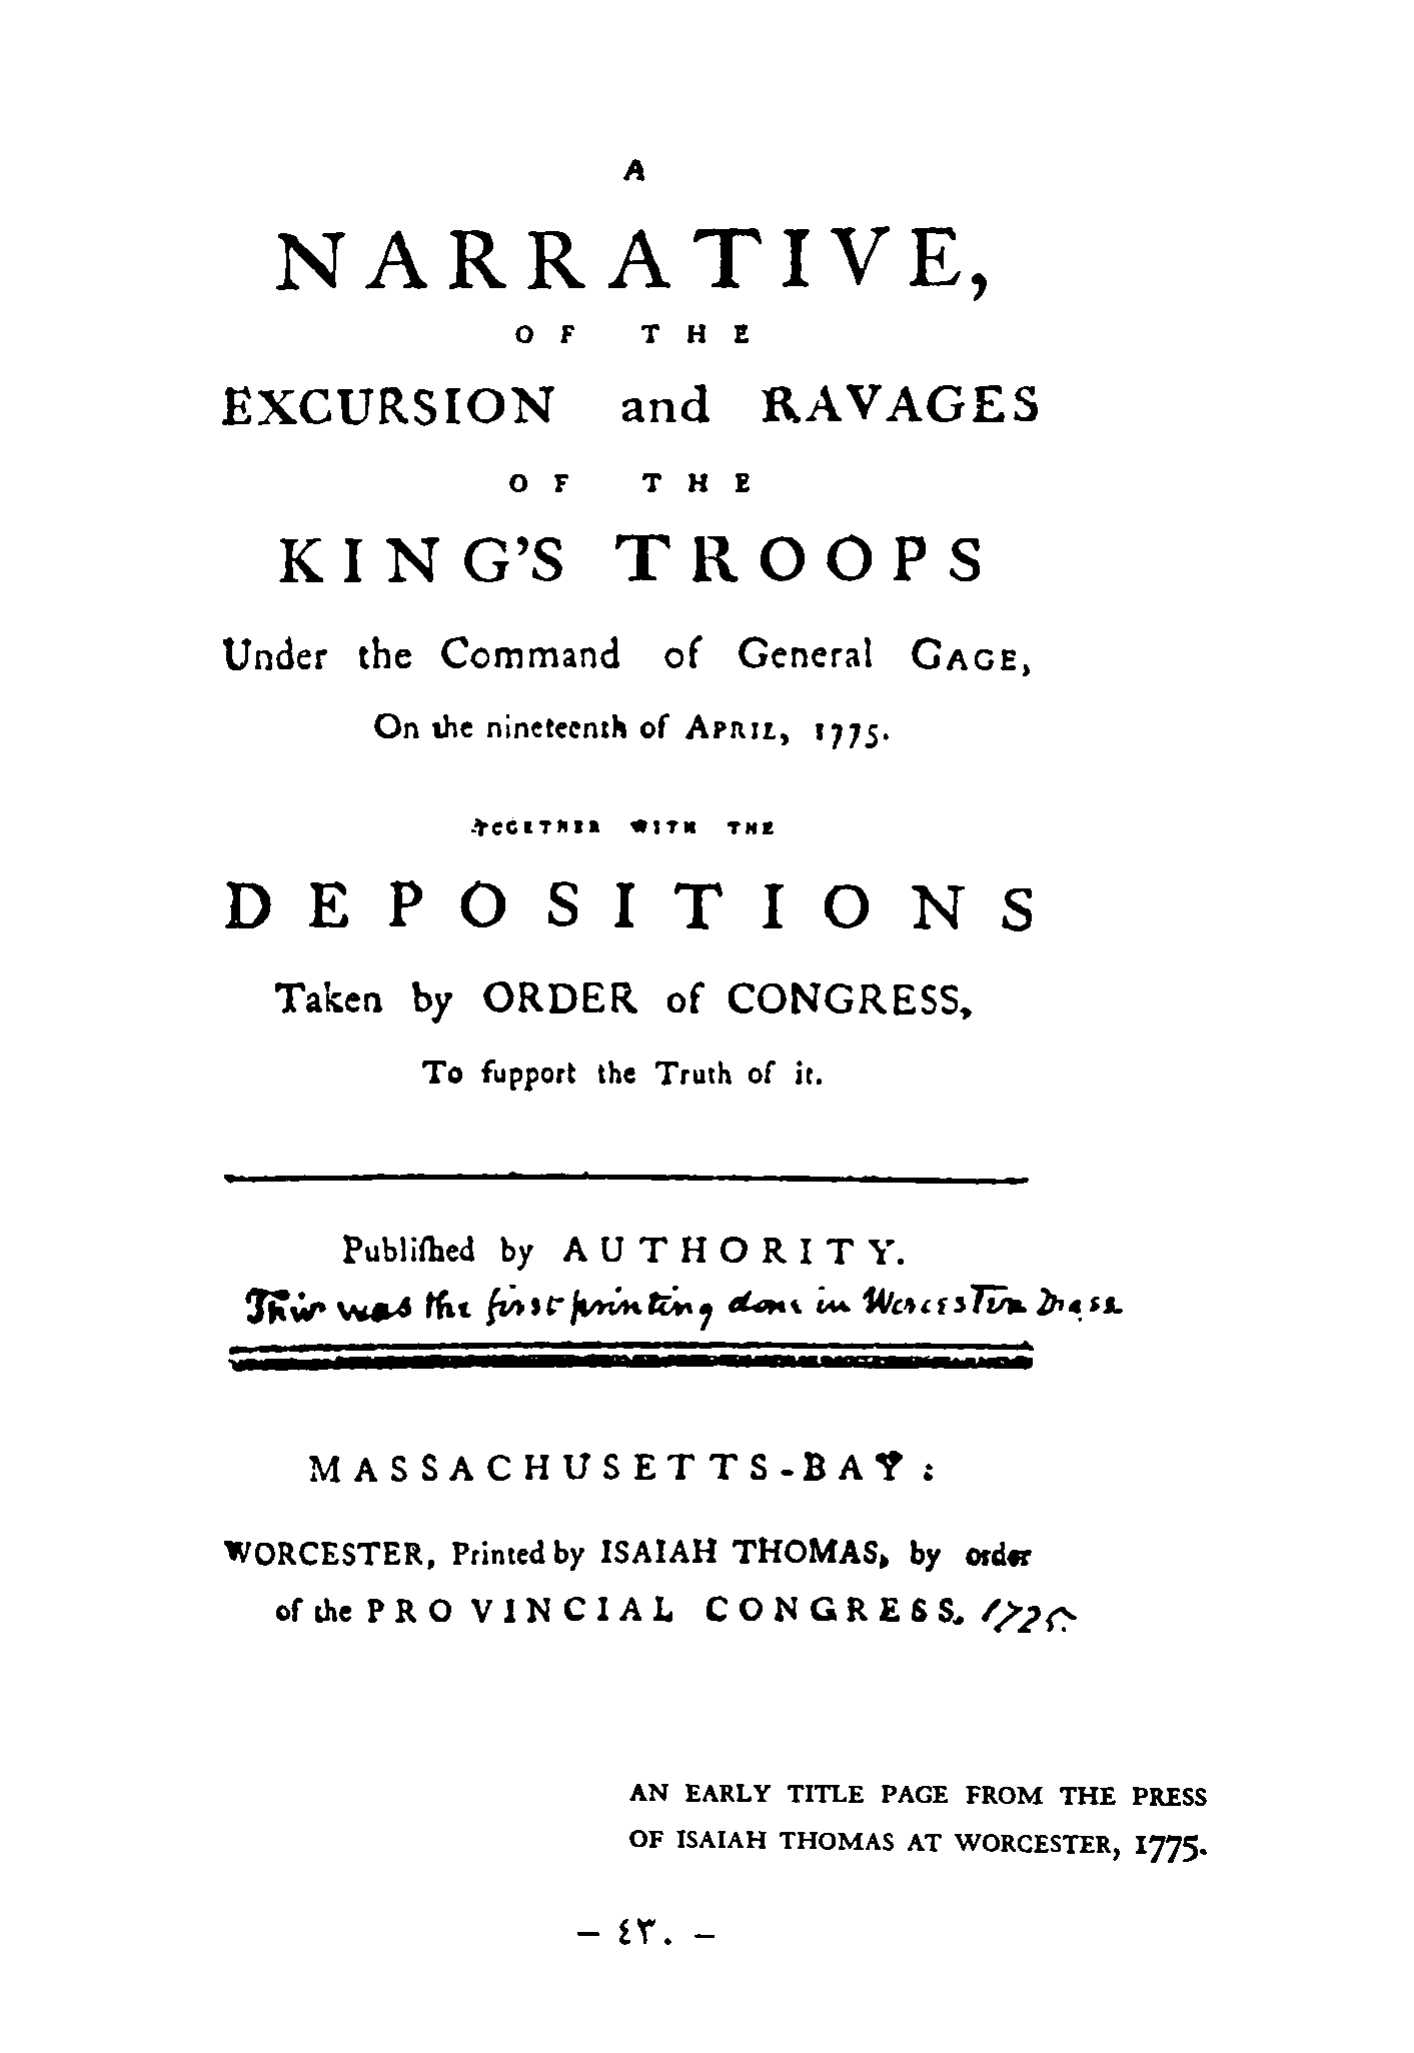 A
NARRATIVE,
OF THE
EXCURSION and RAVAGES
OF THE
KING'S TROOPS
Under the Command of General GAGE,
On the nineteenth of APRIL, 1775.
TOGETHER WITH THE
DEPOSITIONS
Taken by ORDER of CONGRESS,
To ſupport the Truth of it.
Publiſhed by AUTHORITY.
This was the first printing done in Worcester Mass.
MASSACHUSETTS-BAY:
WORCESTER, Printed by ISAIAH THOMAS, by order
of the PROVINCIAL CONGRESS. 1775.
AN EARLY TITLE PAGE FROM THE PRESS
OF ISAIAH THOMAS AT WORCESTER, 1775.
– ٤٣٠ –